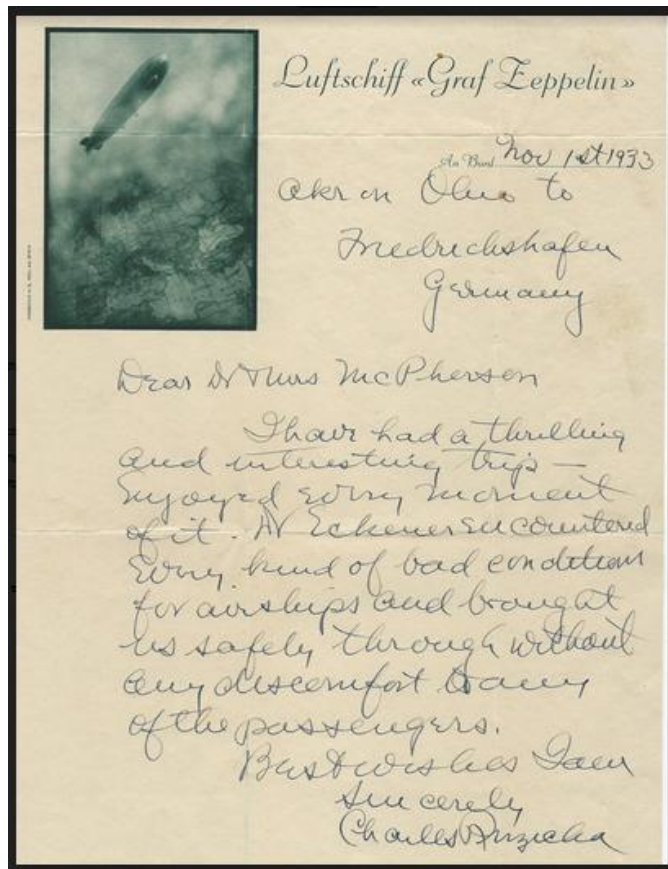 Luftschiff «Graf Zeppelin»
An Bord Nov 1st 1933
Akron Ohio to
Friedrichshafen
Germany
Dear Dr & Mrs McPherson
I have had a thrilling
and interesting trip —
Enjoyed every moment
of it. Dr Eckener encountered
Every kind of bad conditions
for airships and brought
us safely through without
any discomfort to any
of the passengers.
Best wishes I am
Sincerely
Charles